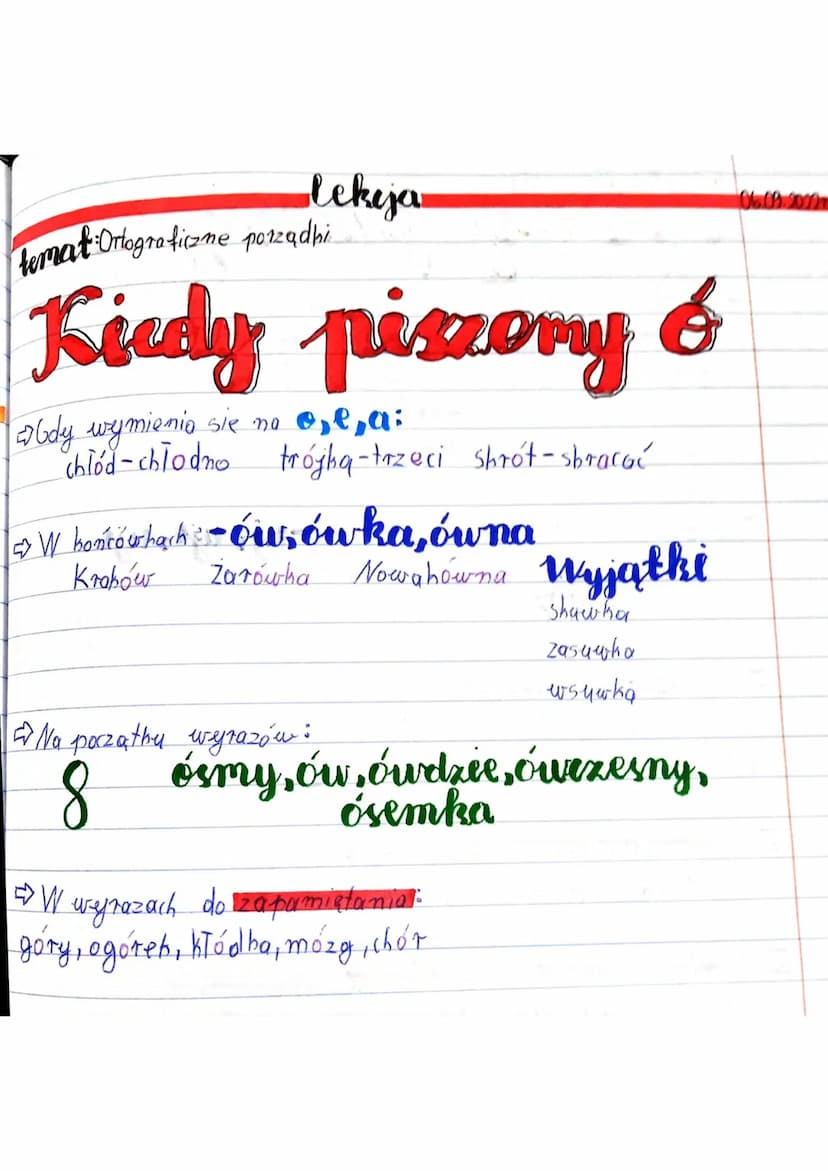 Lekcja
06.09.2022r
temat: Ortograficzne porządki
Kiedy piszemy ó
⇨ Gdy wymienia się na o, e, a:
chłód - chłodno trójka - trzeci skrót - skracać
⇨ W końcówkach: -ów, ówka, ówna
Kraków Żarówka Nowakówna Wyjątki
skuwka
zasuwka
wsuwka
⇨ Na początku wyrazów:
8 ósmy, ów, ówdzie, ówczesny,
ósemka
⇨ W wyrazach do zapamiętania:
góry, ogórek, kłódka, mózg, chór